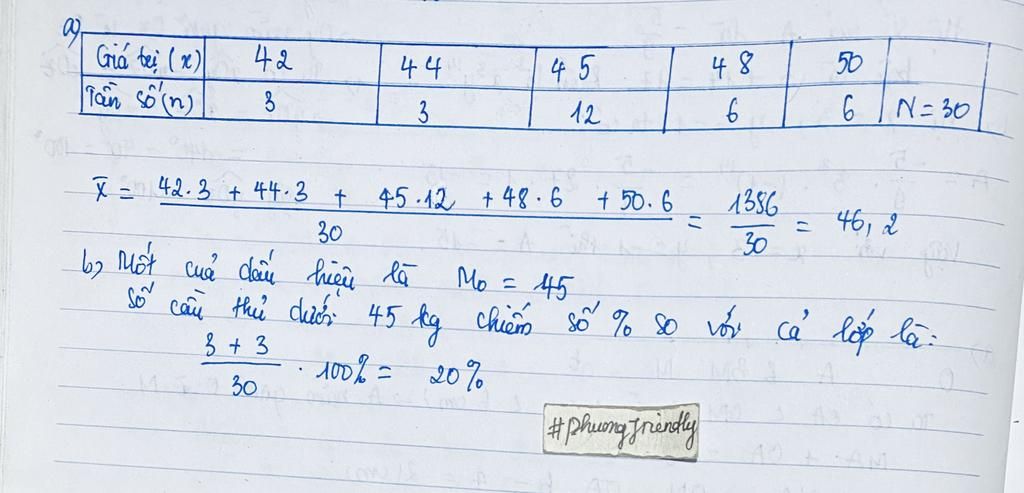 a)
Giá trị (x) 42 44 45 48 50
Tần số (n) 3 3 12 6 6 N = 30
x̄ = (42.3 + 44.3 + 45.12 + 48.6 + 50.6)/30 = 1386/30 = 46,2
b, Mốt cuả dấu hiệu là M₀ = 45
Số cầu thủ dưới 45 kg chiếm số % so với cả lớp là:
(3 + 3)/30 . 100% = 20%
#phuongfriendly